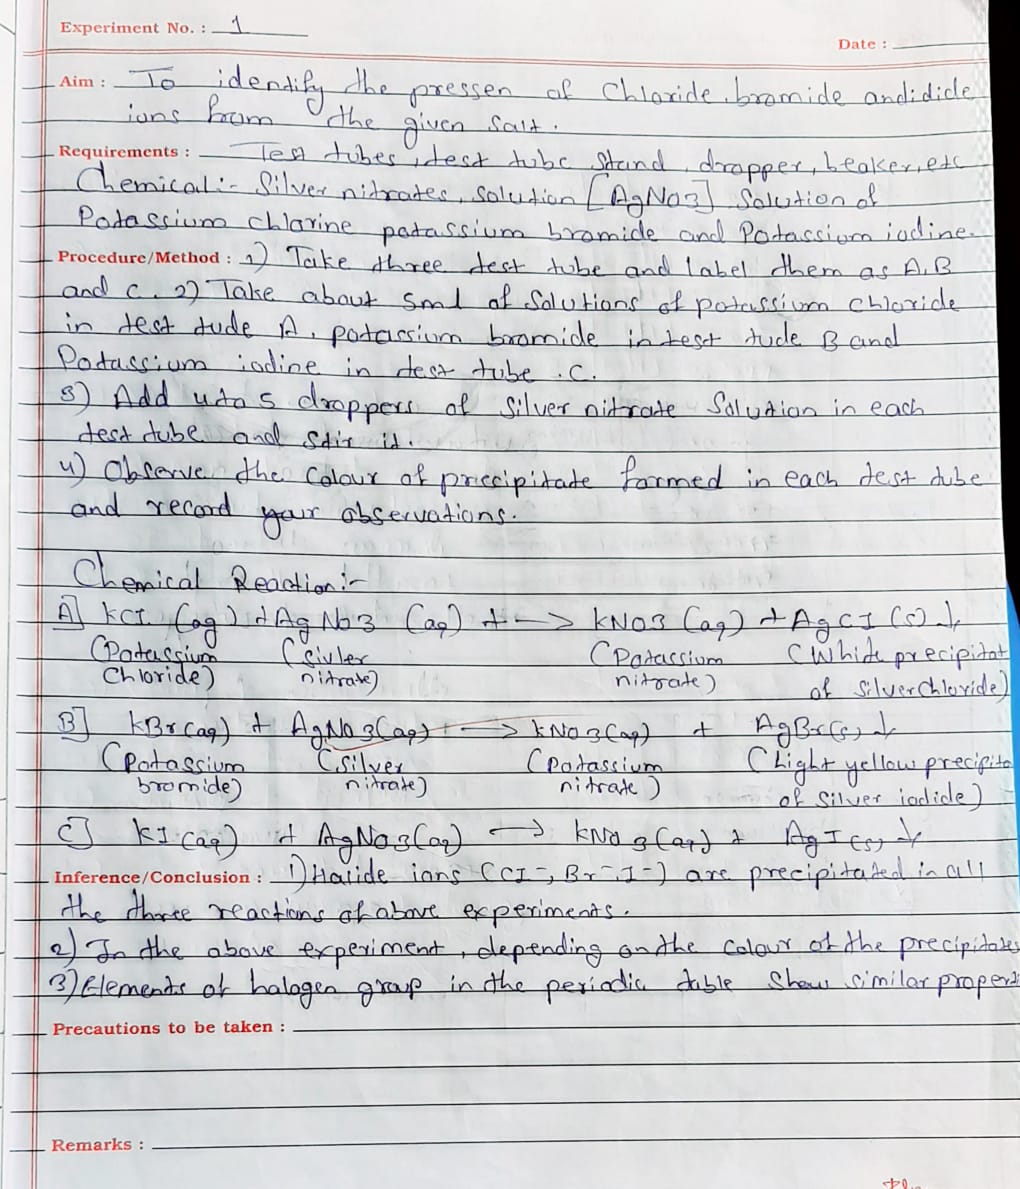 Experiment No. : 1
Date :
Aim : To identify the pressen of Chloride, bromide andidide
ions from the given Salt.
Requirements : Test tubes, test tube Stand, drapper, beaker, etc
Chemical :- Silver nitrates, solution [AgNO3] Solution of
Potassium chlorine patassium bromide and Potassium iodine.
Procedure/Method : 1) Take three test tube and label them as A.B
and C. 2) Take about 5ml of Solutions of potassium chloride
in test tude A, potassium bromide in test tude B and
Potassium iodine in test tube .C.
3) Add 4to5 droppers of Silver nitrate Solution in each
test tube and stir it.
4) Observe the colour of preecipitate formed in each test tube
and record your observations.
Chemical Reaction :-
A] KCI (aq) + AgNO3 (aq) + -> KNO3 (aq) + AgCI (s) ↓
(Potassium (Sivler (Potassium (White precipitat
Chloride) nitrate) nitrate) of Silver Chloride)
B] KBr(aq) + AgNO3(aq) -> KNO3(aq) + AgBr(s) ↓
(Potassium (Silver (Potassium (Light yellow precipita
bromide) nitrate) nitrate) of Silver iodide)
C] KI (aq) + AgNO3(aq) -> KNO3(aq) + AgI(s) ↓
Inference/Conclusion : 1) Halide ions (CI-, Br-, I-) are precipitated in all
the three reactions of above experiments.
2) In the above experiment, depending on the colour of the precipitates
3) Elements of halogen group in the periodic table Show similar propert
Precautions to be taken :
Remarks :